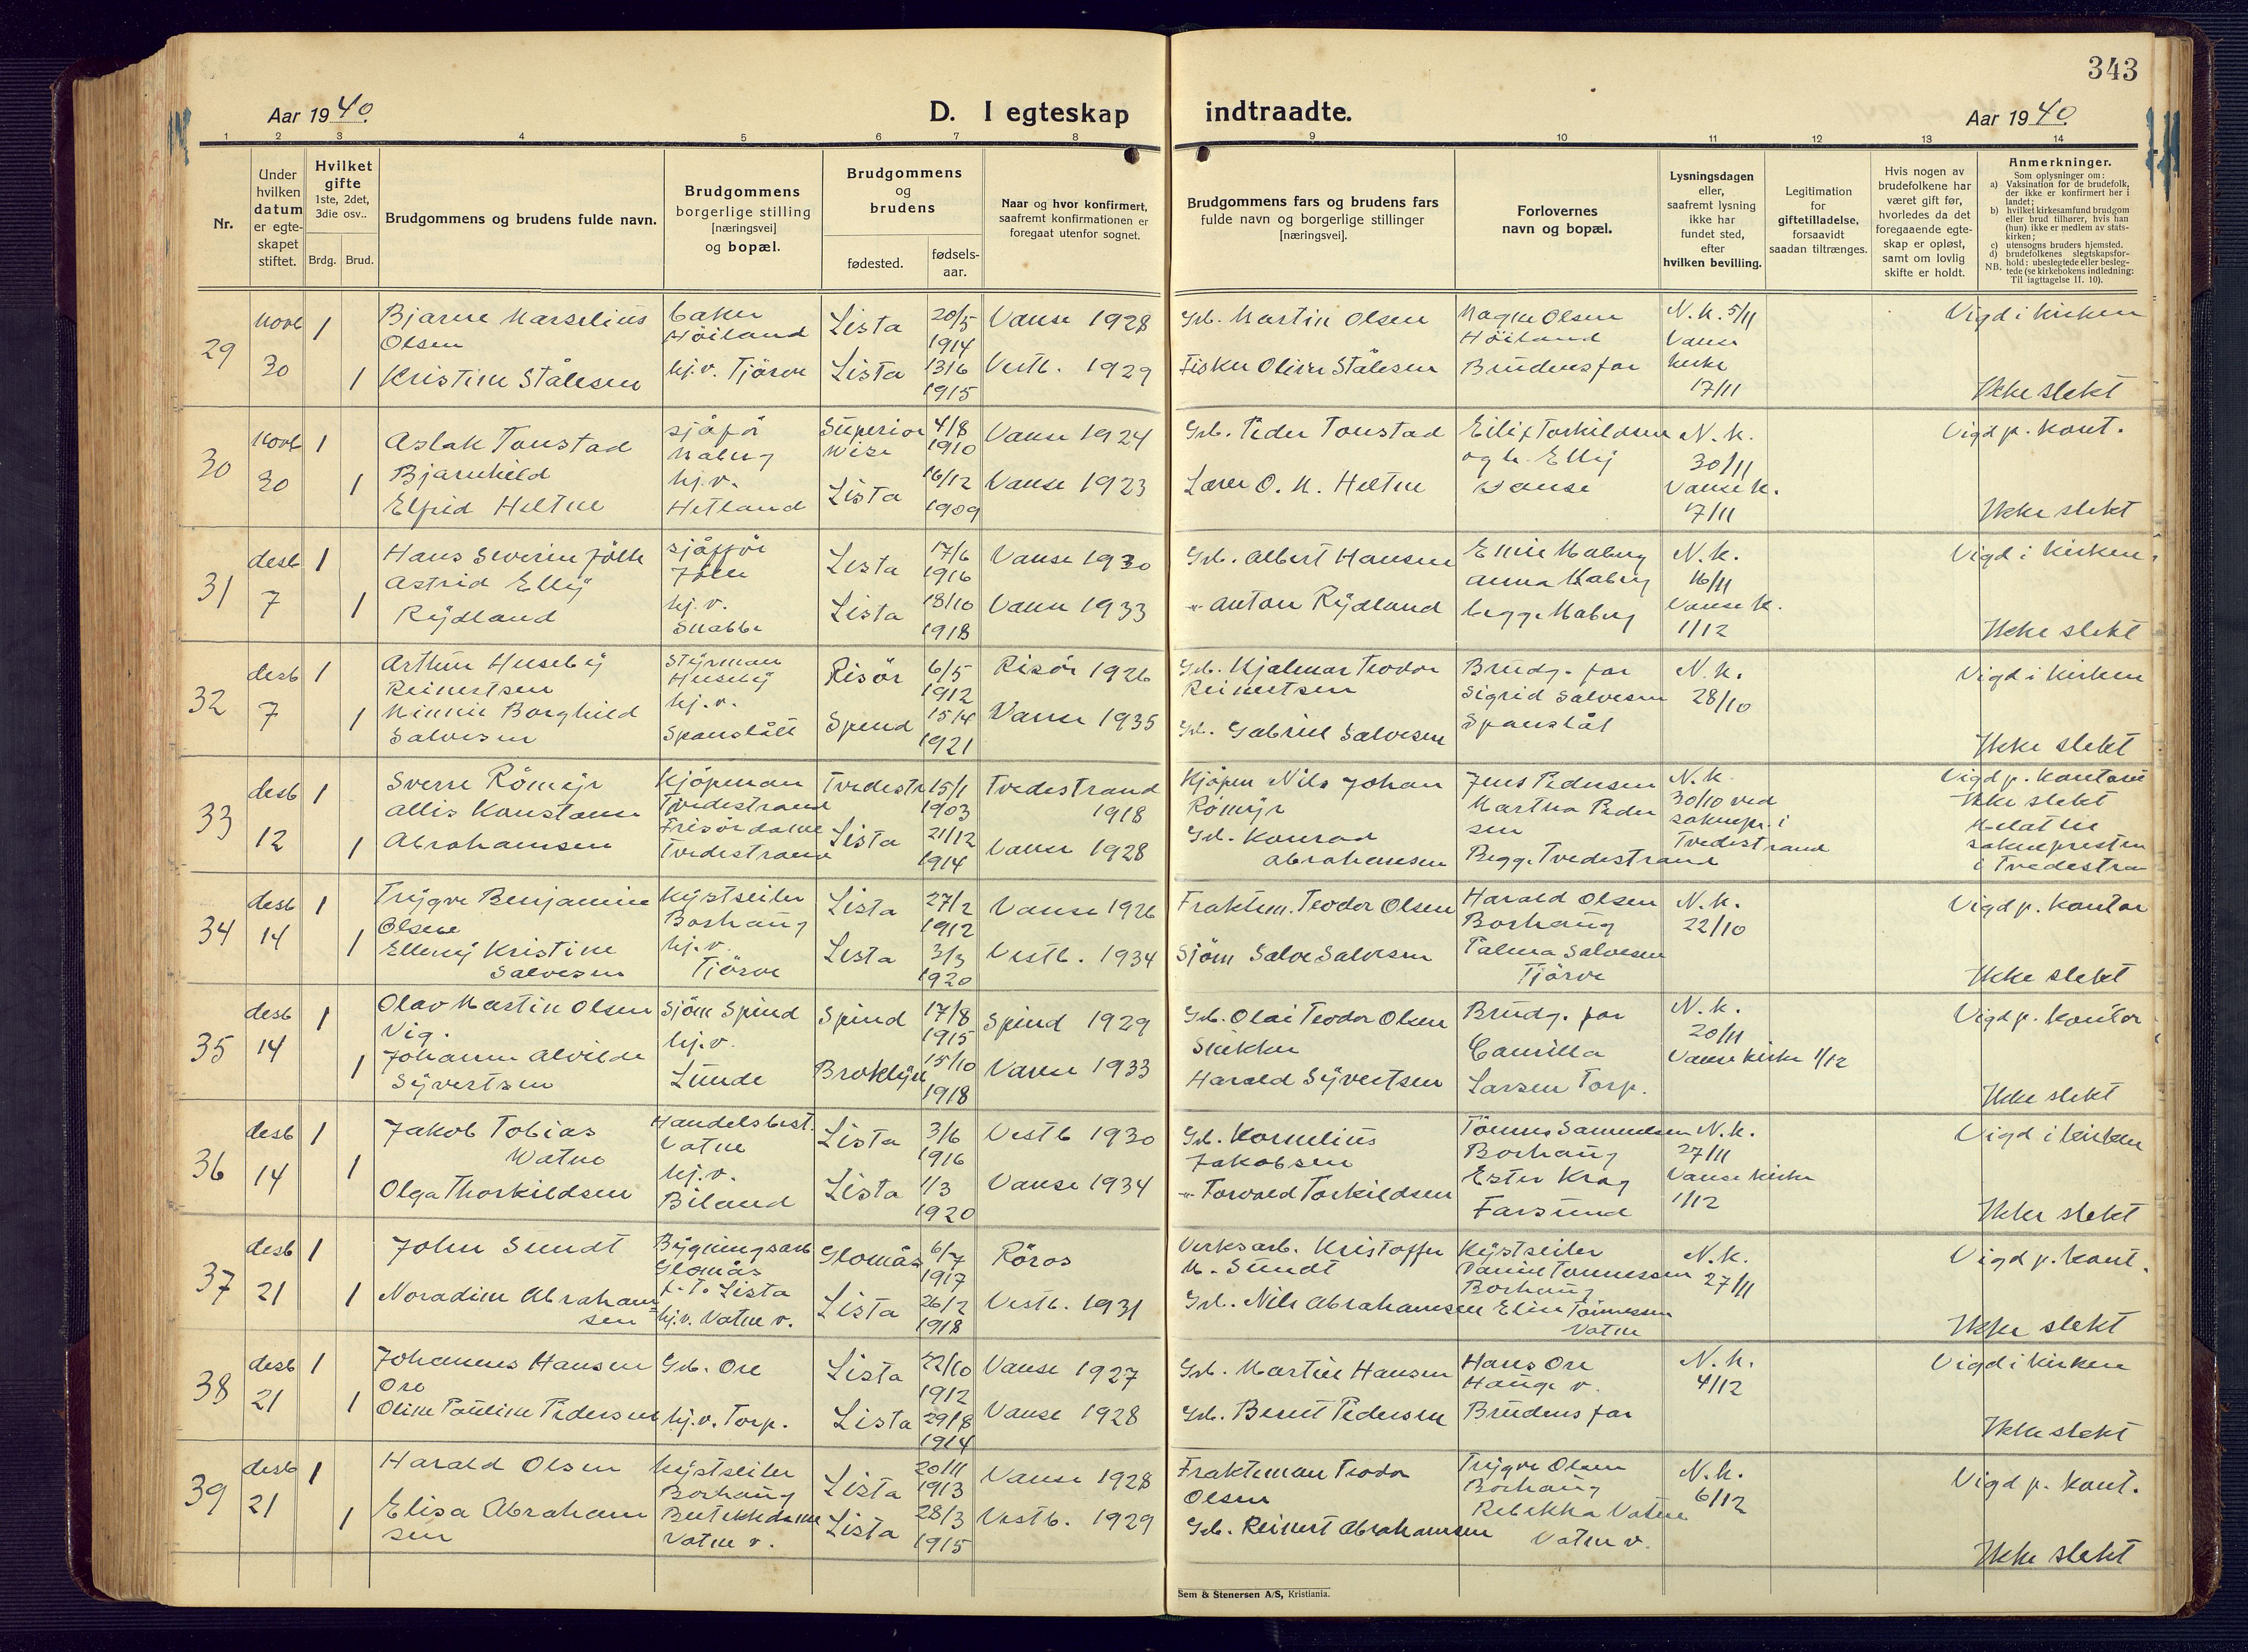 343
Aar 1940.
D. I egteskap
indtraadte.
Aar 1940.
1 2 3 4 5 6 7 8 9 10 11 12 13 14
Nr.
Under hvilken datum er egte-skapet stiftet.
Hvilket gifte
1ste, 2det, 3die osv..
Brdg. Brud.
Brudgommens og brudens fulde navn.
Brudgommens borgerlige stilling [næringsvei] og bopæl.
Brudgommens og brudens
fødested.
fødsels-aar.
Naar og hvor konfirmert, saafremt konfirmationen er foregaat utenfor sognet.
Brudgommens fars og brudens fars fulde navn og borgerlige stillinger [næringsvei].
Forlovernes navn og bopæl.
Lysningsdagen eller, saafremt lysning ikke har fundet sted, efter hvilken bevilling.
Legitimation for giftetilladelse, forsaavidt saadan tiltrænges.
Hvis nogen av brudefolkene har været gift før, hvorledes da det foregaaende egte-skap er opløst, samt om lovlig skifte er holdt.
Anmerkninger.
Som oplysninger om:
a) Vaksination for de brudefolk, der ikke er konfirmert her i landet;
b) hvilket kirkesamfund brudgom eller brud tilhører, hvis han (hun) ikke er medlem av stats-kirken;
c) utensogns bruders hjemsted.
d) brudefolkenes slegtskapsfor-hold: ubeslegtede eller besleg-tede (se kirkebokens indledning:
NB. Til iagttagelse II. 10).
29 novb 30 1 Bjarne Marselius Olsen baker Höiland Lista 20/5 1914 Vanse 1928 Grb. Martin Olsen Magne Olsen Höiland N.K. 5/11 Vanse kirke 17/11 Vigd i kirken
1 Kristine Stålesen hj.v. Tjörve Lista 13/6 1915 Vestb. 1929 Fisker Oliver Stålesen Brudens far Ikke slekt
30 novb 30 1 Aslak Tonstad sjåför Maberg Superior Wisc 4/8 1910 Vanse 1924 Grb. Peder Tonstad Eilif Torkildsen og h. Elly Vanse N.K. 30/11 Vanse k. 7/11 Vigd p. kont.
1 Bjarnhild Elfrid Heltne hj.v. Hetland Lista 16/12 1909 Vanse 1923 Lærer O. M. Heltne Ikke slekt
31 desb 7 1 Hans Severin Jölle sjåfför Jölle Lista 17/6 1916 Vanse 1930 Grb. Albert Hansen Emil Maberg Anna Maberg begge Maberg N.K. 16/11 Vanse k. 1/12 Vigd i kirken.
1 Astrid Elly Rydland hj.v. Snabbe Lista 18/10 1918 Vanse 1933 " Anton Rydland Ikke slekt
32 desb 7 1 Arthur Huseby Reinertsen Styrman Huseby Risör 6/5 1912 Risör 1926 Grb. Hjalmar Teodor Reinertsen Brudg. far N.K. 28/10 Vigd i kirken
1 Minnie Borghild Salvesen hj.v. Spanslått Spind 15/4 1921 Vanse 1935 Grb. Gabriel Salvesen Sigrid Salvesen Spanslåt Ikke slekt
33 desb 12 1 Sverre Römcyr Kjöpman Tvedestrand Tvedestr 15/1 1903 Tvedestrand 1918 Kjöpm Nils Johan Römcyr Jens Pedersen N.K. 30/10 ved soknepr. i Tvedestrand Vigd p. kontoret
1 Allis Konstanse Abrahamsen Frisördame Tvedestrand Lista 21/12 1914 Vanse 1928 Grb. Konrad Abrahamsen Martha Pedersen Begge Tvedestrand Ikke slekt Melat til soknepresten i Tvedestran
34 desb 14 1 Trygve Benjamine Olsen Kystseiler Borhaug Lista 27/2 1912 Vanse 1926 Fraktem. Teodor Olsen Harald Olsen Borhaug N.K. 22/10 Vigd p. kontor
1 Elleny Kristine Salvesen hj.v. Tjörve Lista 3/3 1920 Vestb. 1934 Sjöm Salve Salvesen Palma Salvesen Tjörve Ikke slekt
35 desb 14 1 Olav Martin Olsen Vig. Sjöm Spind Spind 17/8 1915 Spind 1929 Grb. Olai Teodor Olsen Brudg. far N.K. 20/11 Vanse kirke 1/12 Vigd p. kontor
1 Johanne Alvilde Syvertsen hj.v. Lunde Broklyn 15/10 1918 Vanse 1933 Snekker Harald Syvertsen Camilla Larsen Torp. Ikke slekt
36 desb 14 1 Jakob Tobias Watne Handelsbest. Vatne Lista 3/6 1916 Vestb 1930 Grb. Kornelius Jakobsen Tönnes Samuelsen Borhaug N.K. 27/11 Vanse kirke 1/12 Vigd i kirken
1 Olga Thorkildsen hj.v. Biland Lista 1/3 1920 Vanse 1934 " Torvald Torkildsen Ester Krag Farsund Ikke slekt
37 desb 21 1 John Sundt Bygningsarb Glomås f.t. Lista Glomås 6/7 1917 Röros Verksarb. Kristoffer M. Sundt Kystseiler Daniel Tönnessen Borhaug N.K. 27/11 Vigd p. kont.
1 Noradine Abrahamsen hj.v. Vatne v. Lista 26/2 1918 Vestb. 1931 Grb. Nils Abrahamsen Elin Tönnessen Vatne Ikke slekt
38 desb 21 1 Johannes Hansen Ore Grb. Ore Lista 22/10 1912 Vanse 1927 Grb. Martin Hansen Hans Ore Hauge v. N.K. 4/12 Vigd i kirken
1 Oline Pauline Pedersen hj.v. Torp. Lista 29/8 1914 Vanse 1928 Grb. Bernt Pedersen Brudens far Ikke slekt
39 desb 21 1 Harald Olsen Kystseiler Borhaug Lista 20/11 1913 Vanse 1928 Fraktemann Teodor Olsen Trygve Olsen Borhaug N.K. 6/12 Vigd p. kont.
1 Elisa Abrahamsen Butikkdame Vatne v. Lista 28/3 1915 Vestb. 1929 Grb. Reinert Abrahamsen Rebekka Vatne Vatne v. Ikke slekt
Sem & Stenersen A/S, Kristiania.